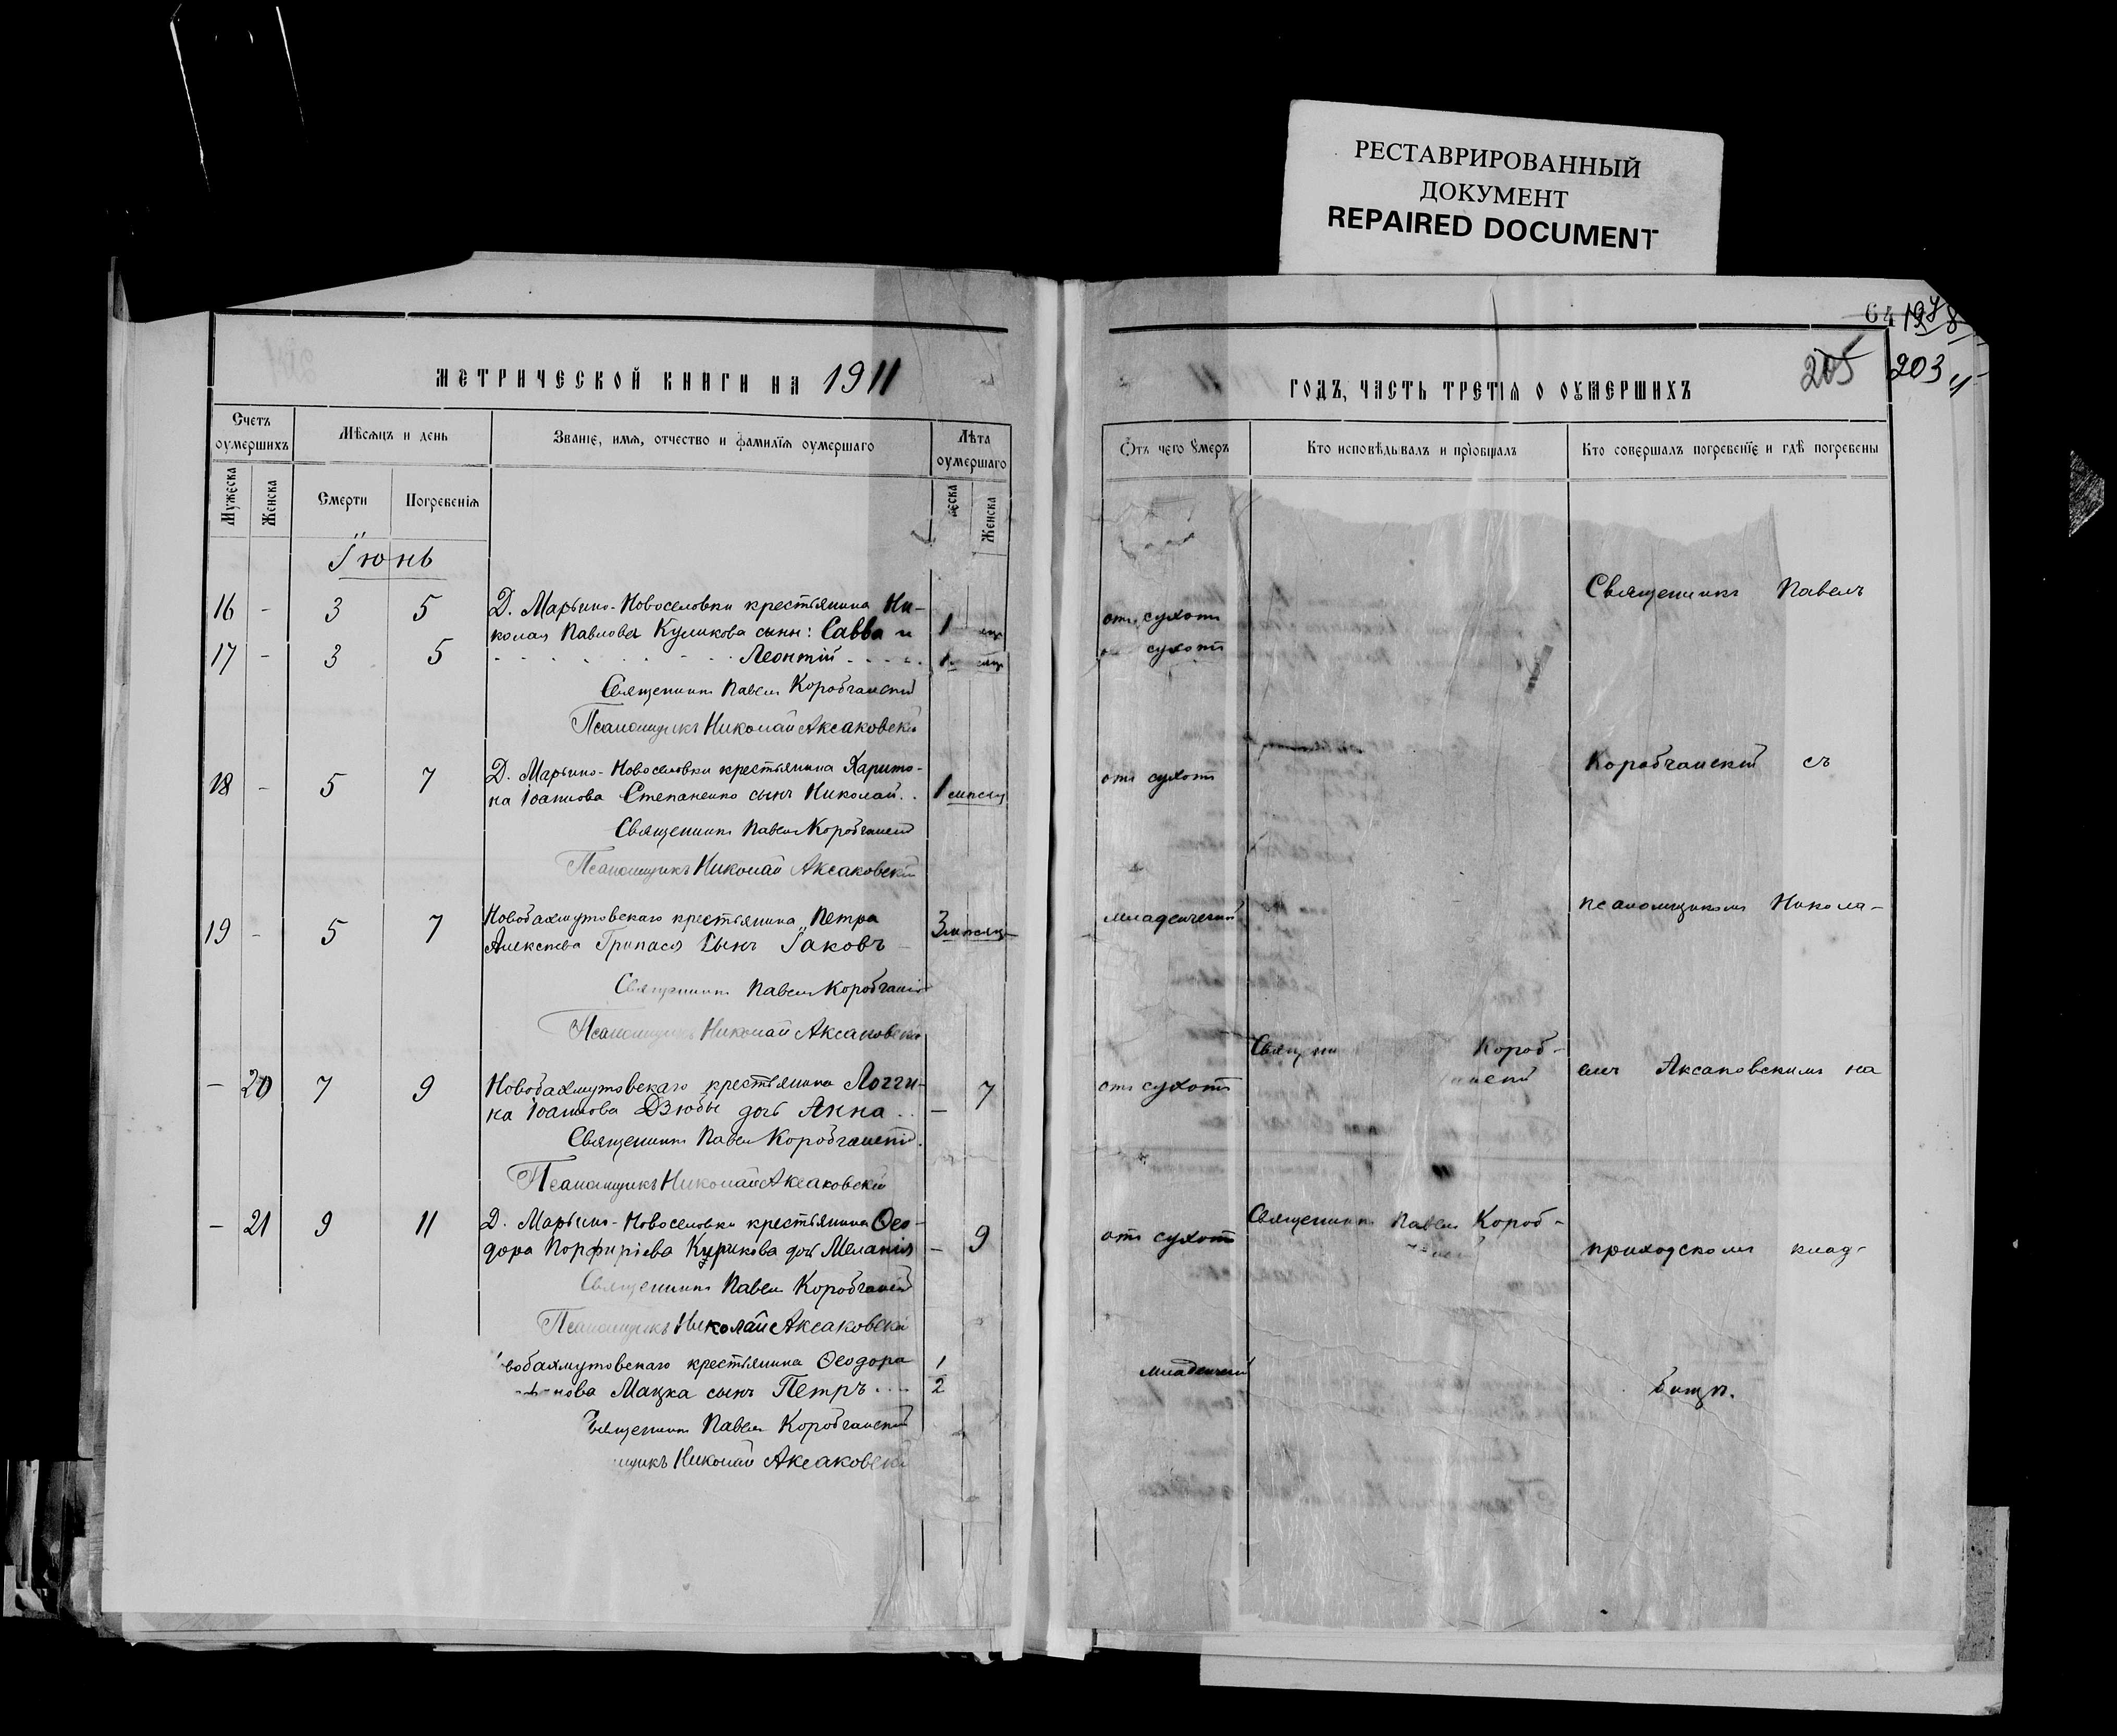 РЕСТАВРИРОВАННЫЙ
ДОКУМЕНТ
REPAIRED DOCUMENT
МЕТРИЧЕСКОЙ КНИГИ НА 1911
Счетъ оумершихъ
Мѣсяцъ и день
Званіе, имя, отчество и фамилія оумершаго
Лѣта оумершаго
Мужеска
Женска
Смерти
Погребенія
еска
Женска
Іюнь
16 - 3 5 Д. Марьино-Новоселовки крестьянина Ни-
колая Павлова Куликова сынъ: Савва и 1
17 - 3 5 Леонтій 1
Священникъ Павелъ Коробчанскій
Псаломщикъ Николай Аксаковскій
18 - 5 7 Д. Марьино-Новоселовки крестьянина Харито-
на Іоаннова Степаненко сынъ Николай 1 мѣсяц
Священникъ Павелъ Коробчанскій
Псаломщикъ Николай Аксаковскій
19 - 5 7 Новобахмутовскаго крестьянина Петра
Алексѣева Грипася сынъ Іаковъ 3 мѣсяц
Священникъ Павелъ Коробчанскій
Псаломщикъ Николай Аксаковскій
- 20 7 9 Новобахмутовскаго крестьянина Логги-
на Іоаннова Дзюбы дочь Анна - 7
Священникъ Павелъ Коробчанскій
Псаломщикъ Николай Аксаковскій
- 21 9 11 Д. Марьино-Новоселовки крестьянина Ѳео-
дора Порфиріева Курикова дочь Меланія - 9
Священникъ Павелъ Коробчанскій
Псаломщикъ Николай Аксаковскій
вобахмутовскаго крестьянина Ѳеодора 1
нова Мацка сынъ Петръ 2
Священникъ Павелъ Коробчанскій
щикъ Николай Аксаковскій
64
205
203
ГОДЪ, ЧАСТЬ ТРЕТІЯ О ОУМЕРШИХЪ
Отъ чего умеръ
Кто исповѣдывалъ и пріобщалъ
Кто совершалъ погребеніе и гдѣ погребены
Священникъ Павелъ
отъ сухотъ
сухотъ
отъ сухотъ
Коробчанскій съ
младенческой
псаломщикомъ Никола-
Священ Короб-
отъ сухотъ
емъ Аксаковскимъ на
Священникъ Павелъ Короб-
отъ сухотъ
приходскомъ клад-
младенческ
бищѣ.